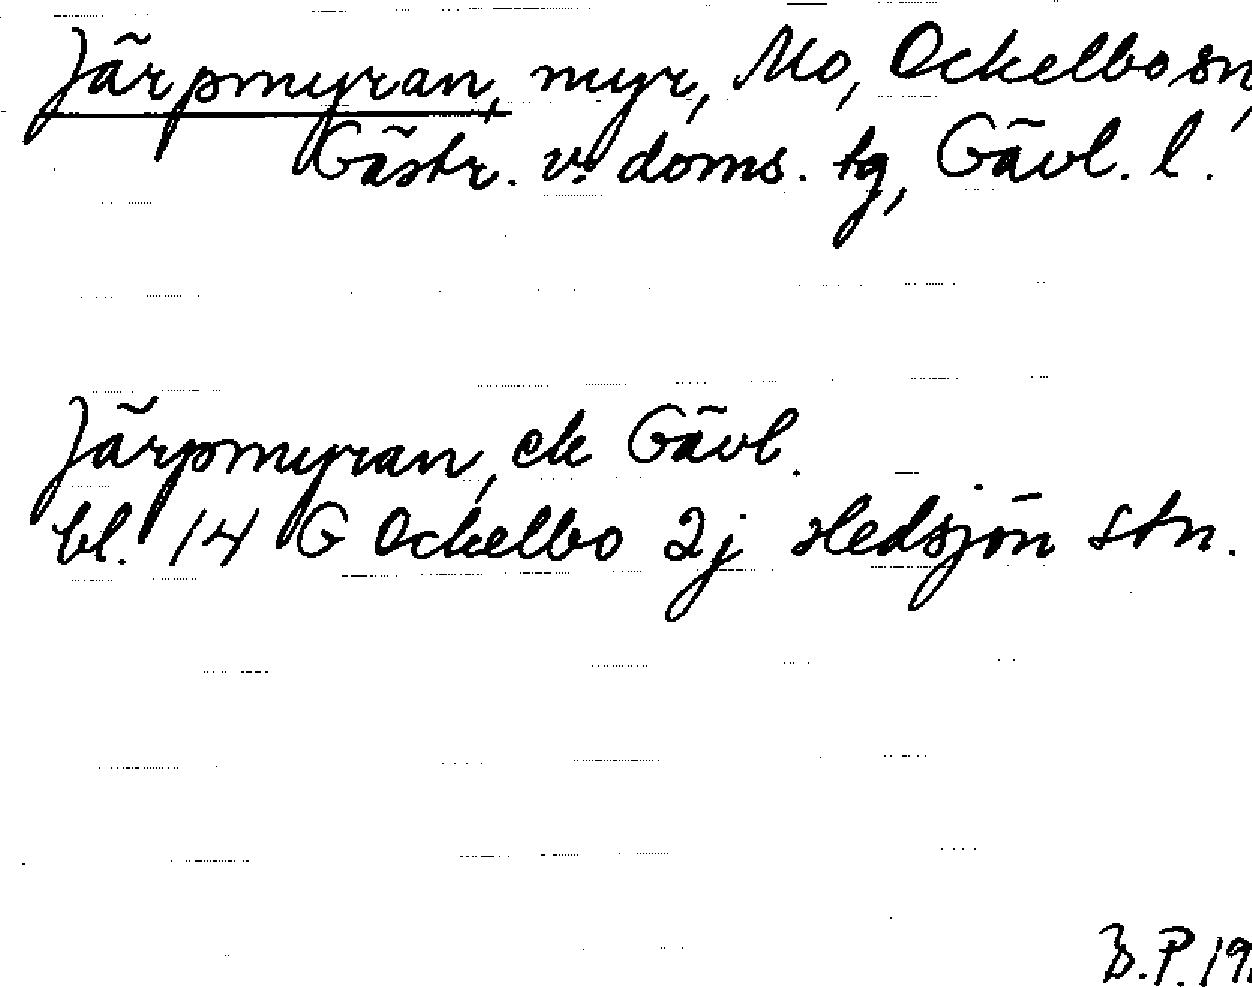 Järpmyran, myr, Mo, Ockelbo sn,
Gästr. v. doms. tg, Gävl. l.
Järpmyran, ek Gävl.
bl. 14 G Ockelbo 2j Hedsjön stn.
B.P. 19